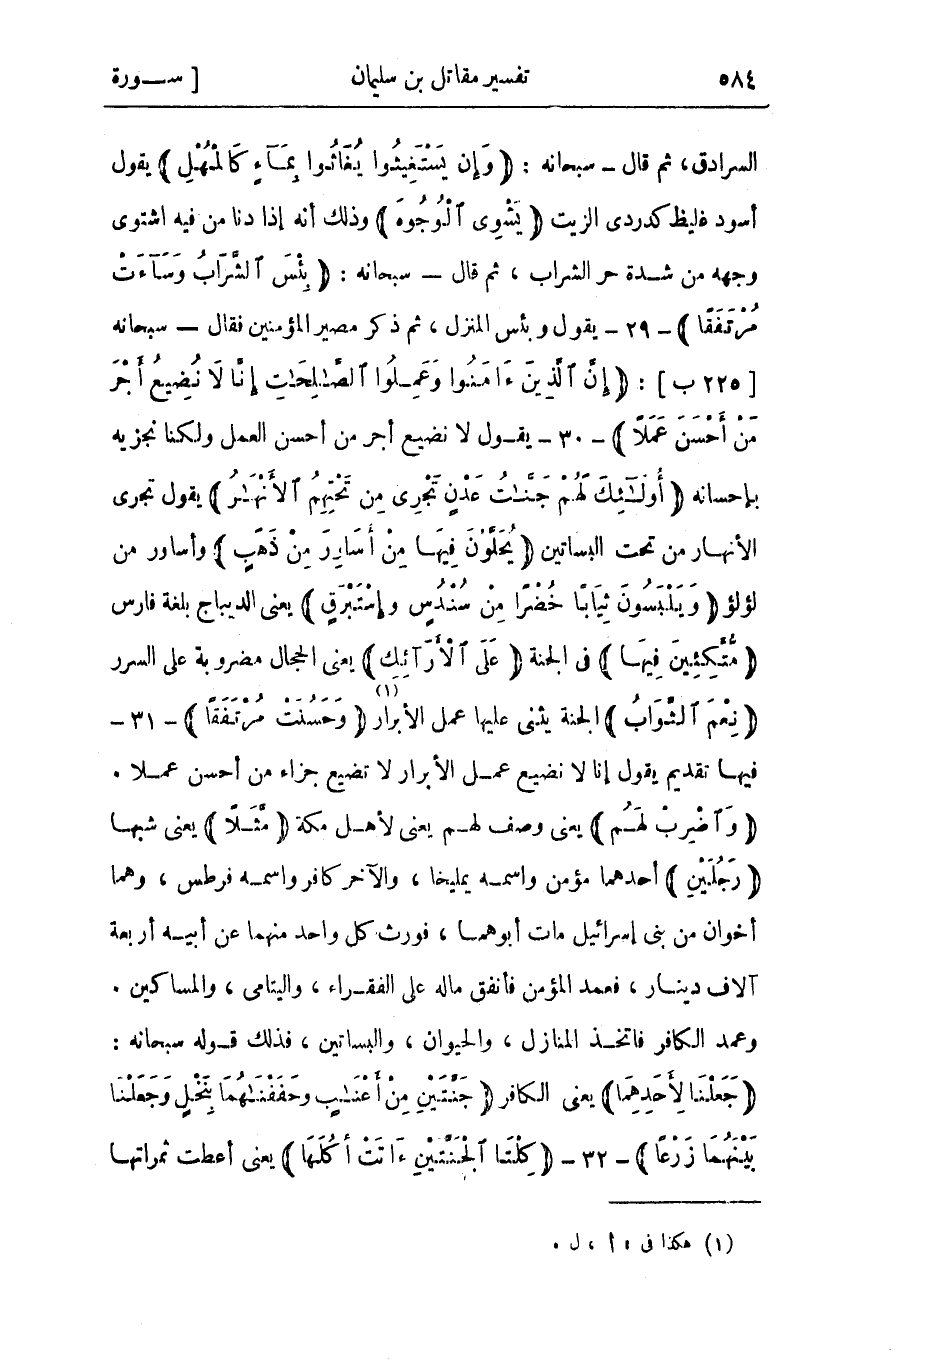 ٥٨٤ تفسير مقاتل بن سليمان [ ســورة
السرادق، ثم قال ــ سبحانه : ﴿ وَإِن يَسْتَغِيثُوا يُغَاثُوا بِمَآءٍ كَالْمُهْلِ ﴾ يقول
أسود غليظ كدردى الزيت ﴿ يَشْوِى ٱلْوُجُوهَ ﴾ وذلك أنه إذا دنا من فيه اشتوى
وجهه من شــدة حر الشراب ، ثم قال ــ سبحانه : ﴿ بِئْسَ ٱلشَّرَابُ وَسَآءَتْ
مُرْتَفَقًا ﴾ ــ ٢٩ ــ يقول وبئس المنزل ، ثم ذكر مصير المؤمنين فقال ــ سبحانه
[ ٢٢٥ ب ] : ﴿ إِنَّ ٱلَّذِينَ ءَامَنُوا وَعَمِلُوا ٱلصَّـٰلِحَـٰتِ إِنَّا لَا نُضِيعُ أَجْرَ
مَنْ أَحْسَنَ عَمَلًا ﴾ ــ ٣٠ ــ يقــول لا نضيع أجر من أحسن العمل ولكنا نجزيه
بإحسانه ﴿ أُولَـٰئِكَ لَهُمْ جَنَّـٰتُ عَدْنٍ تَجْرِى مِن تَحْتِهِمُ ٱلْأَنْهَـٰرُ ﴾ يقول تجرى
الأنهـار من تحت البساتين ﴿ يُحَلَّوْنَ فِيهَـا مِنْ أَسَاوِرَ مِنْ ذَهَبٍ ﴾ وأساور من
لؤلؤ ﴿ وَيَلْبَسُونَ ثِيَابًا خُضْرًا مِنْ سُنْدُسٍ وإِسْتَبْرَقٍ ﴾ يعنى الديباج بلغة فارس
﴿ مُتَّكِئِينَ فِيهَـا ﴾ فى الجنة ﴿ عَلَى ٱلْأَرَآئِكِ ﴾ يعنى الحجال مضروبة على السرر
﴿ نِعْمَ ٱلثَّوَابُ ﴾ الجنة يثنى عليها عمل الأبرار (١) ﴿ وَحَسُنَتْ مُرْتَفَقًا ﴾ ــ ٣١ ــ
فيهـا تقديم يقول إنا لا نضيع عمـل الأبرار لا نضيع جزاء من أحسن عمـلا .
﴿ وَٱضْرِبْ لَهُـم ﴾ يعنى وصف لهـم يعنى لأهـل مكة ﴿ مَّثَـلًا ﴾ يعنى شبهـا
﴿ رَجُلَيْنِ ﴾ أحدهما مؤمن واسمـه يمليخا ، والآخر كافر واسمـه فرطس ، وهما
أخوان من بنى إسرائيل مات أبوهمـا ، فورث كل واحد منهما عن أبيـه أربعة
آلاف دينـار ، فعمد المؤمن فأنفق ماله على الفقـراء ، واليتامى ، والمساكين .
وعمد الكافر فاتخـذ المنازل ، والحيوان ، والبساتين ، فذلك قــوله سبحانه :
﴿ جَعَلْنَا لِأَحَدِهِمَا ﴾ يعنى الكافر ﴿ جَنَّتَيْنِ مِنْ أَعْنَـٰبٍ وَحَفَفْنَـٰهُمَا بِنَخْلٍ وَجَعَلْنَا
بَيْنَهُمَا زَرْعًا ﴾ ــ ٣٢ ــ ﴿ كِلْتَا ٱلْجَنَّتَيْنِ ءَاتَتْ أُكُلَهَا ﴾ يعنى أعطت ثمراتهـا
(١) هكذا فى ، أ ، ل .